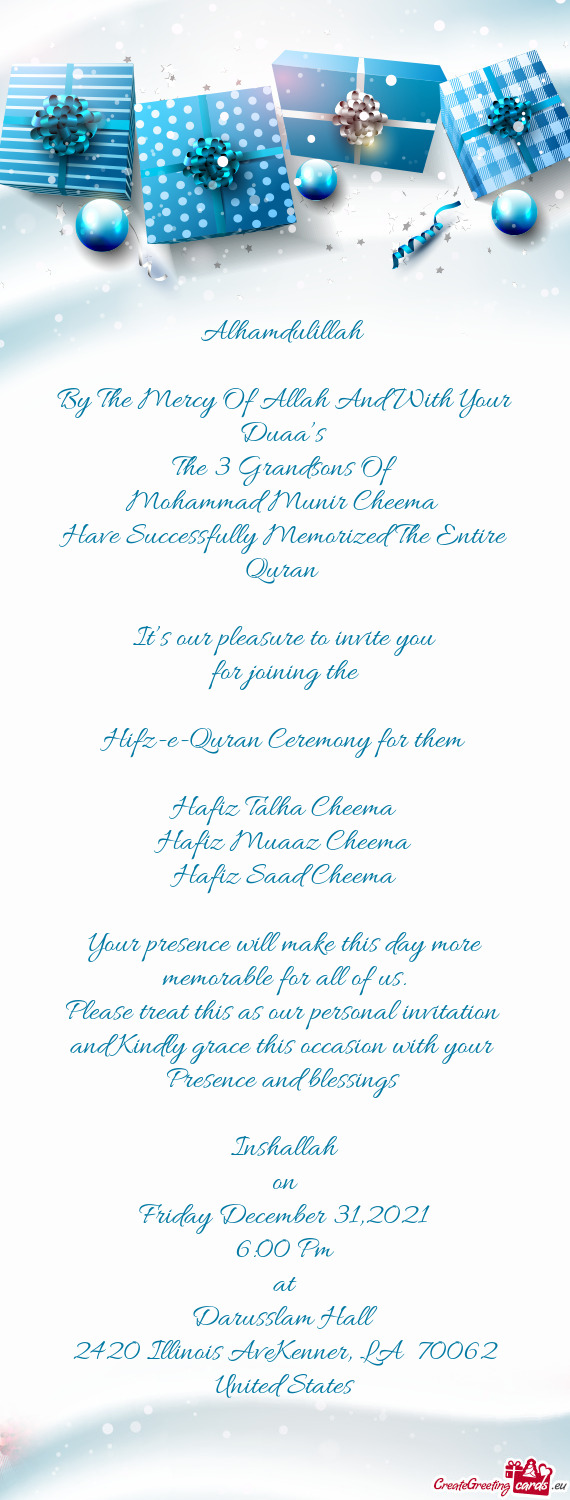 Alhamdulillah
By The Mercy Of Allah And With Your
Duaa's
The 3 Grandsons Of
Mohammad Munir Cheema
Have Successfully Memorized The Entire
Quran
It's our pleasure to invite you
for joining the
Hifz-e-Quran Ceremony for them
Hafiz Talha Cheema
Hafiz Muaaz Cheema
Hafiz Saad Cheema
Your presence will make this day more
memorable for all of us.
Please treat this as our personal invitation
and Kindly grace this occasion with your
Presence and blessings
Inshallah
on
Friday December 31,2021
6:00 Pm
at
Darusslam Hall
2420 Illinois AveKenner, LA 70062
United States
CreateGreetingcards.eu